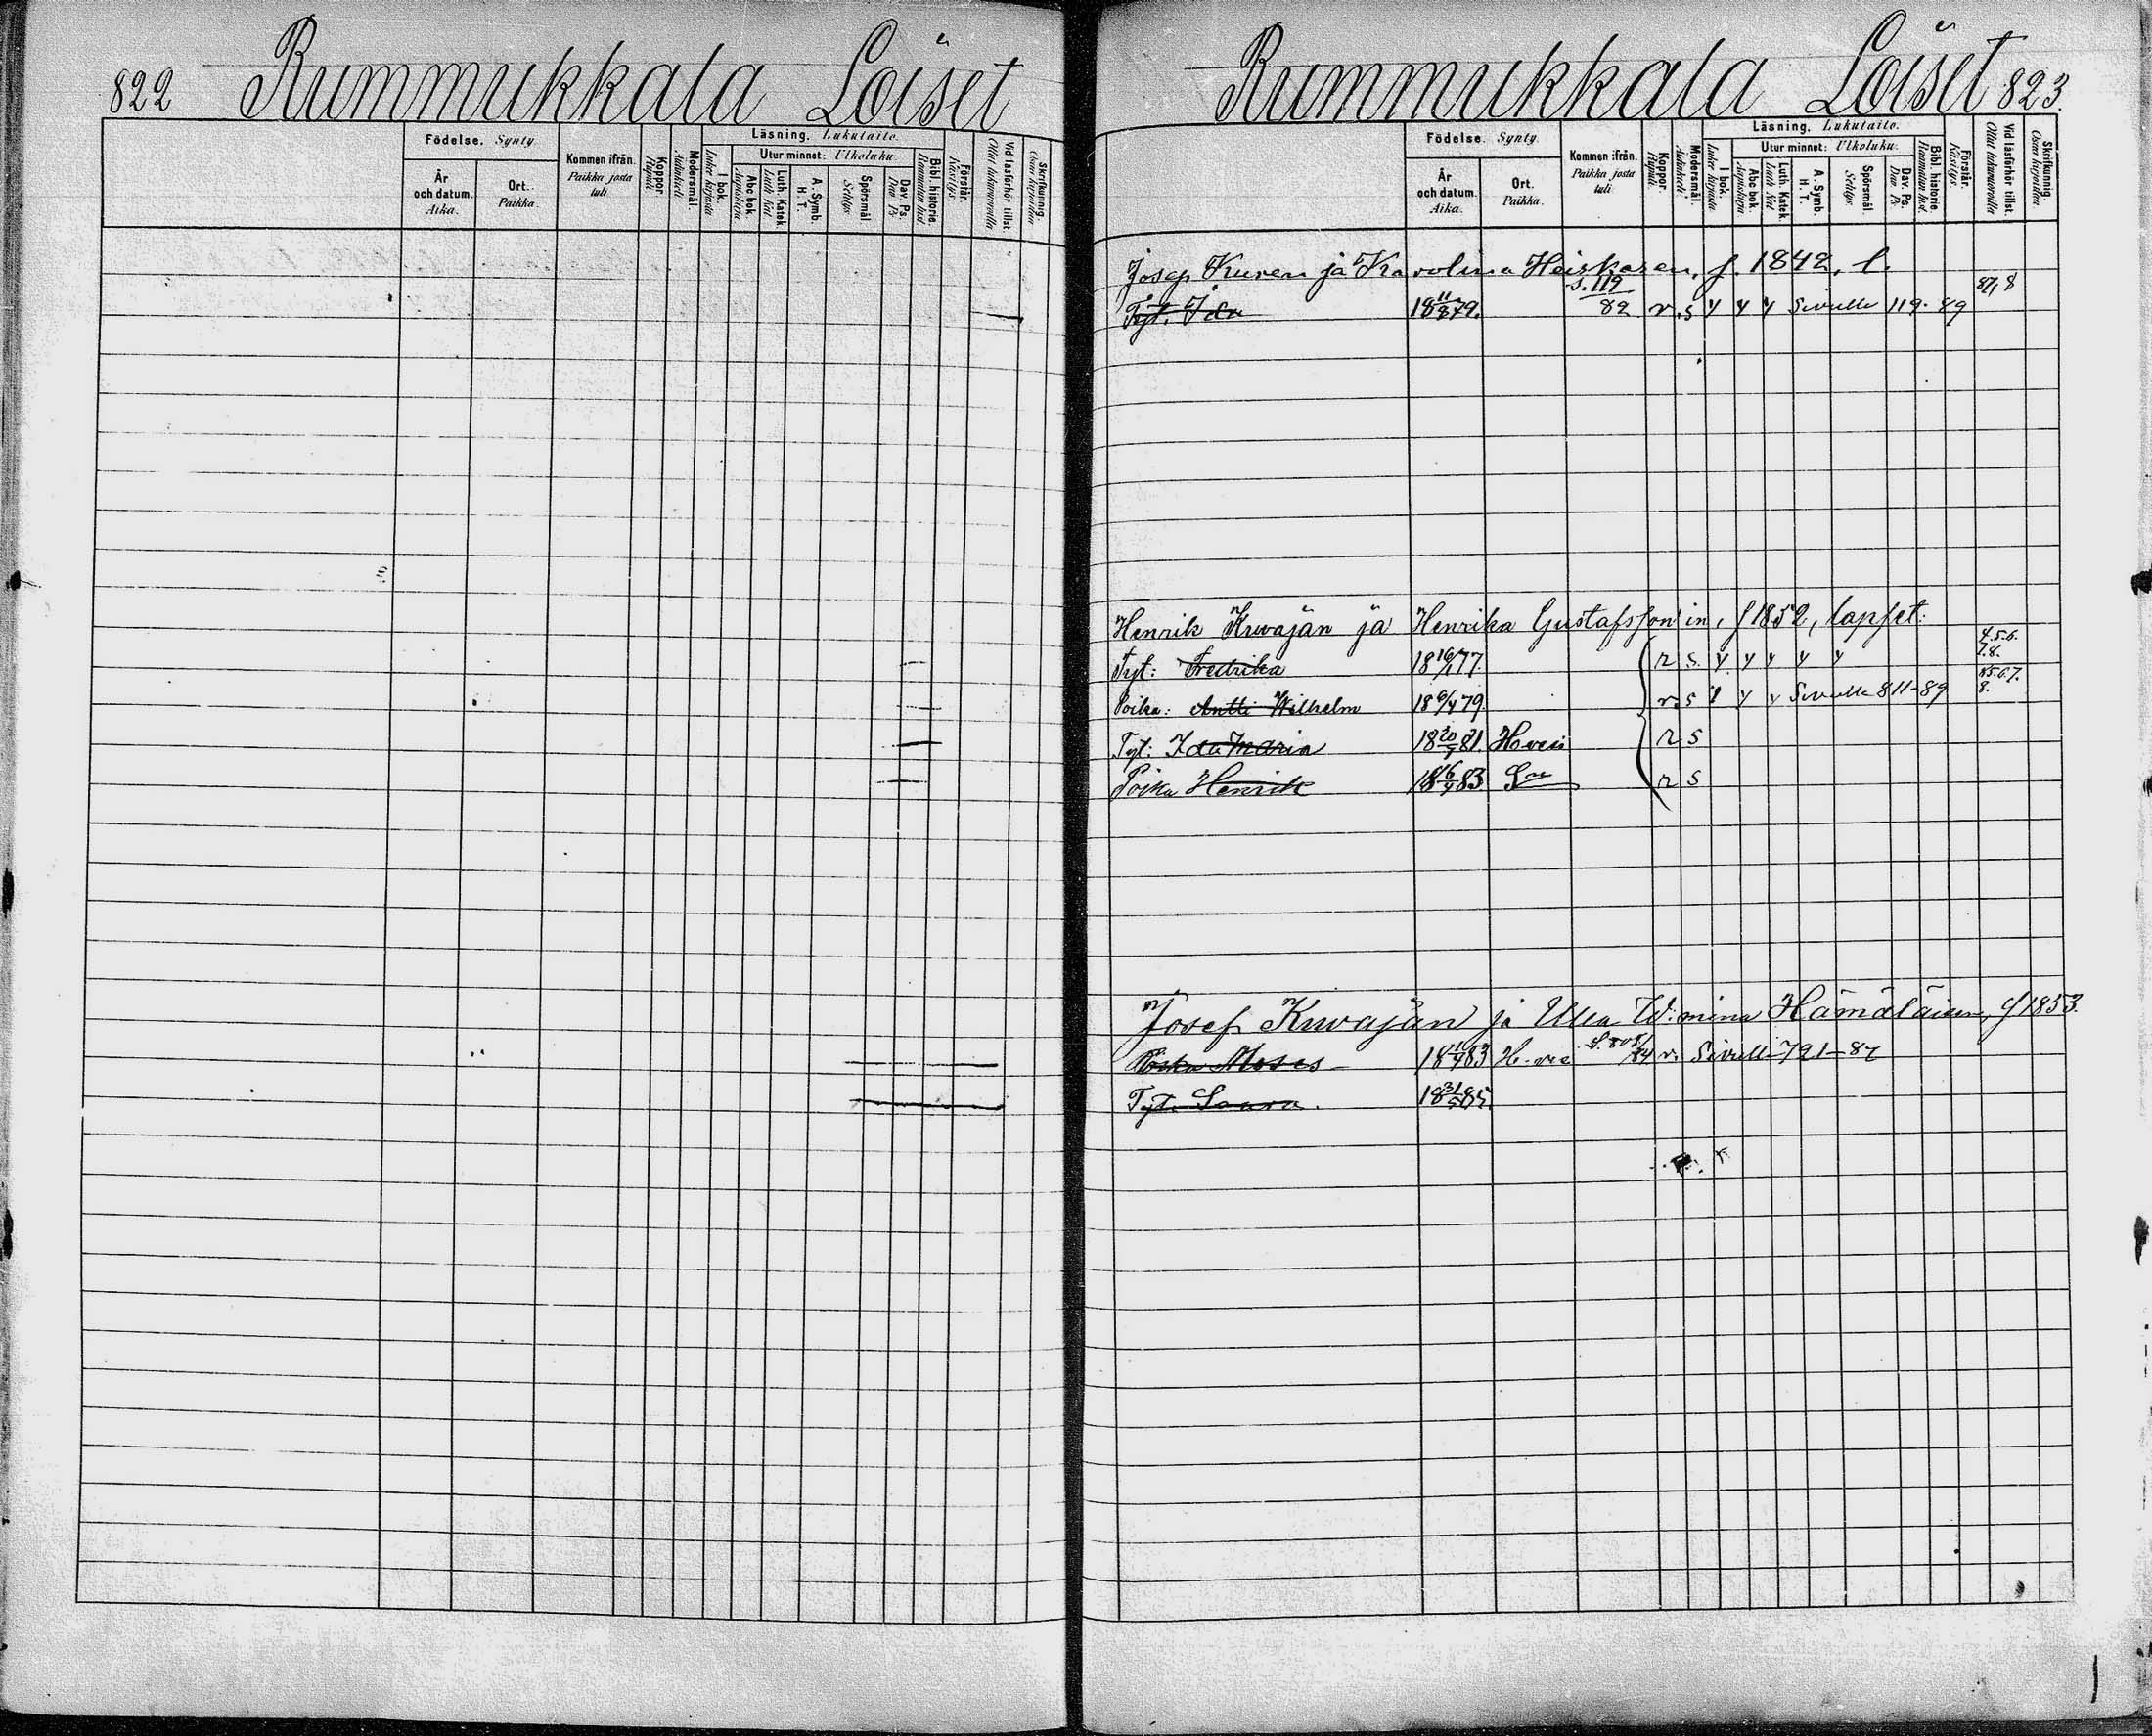 822 Rummukkala Loiset
Födelse. Synty.
År och datum. Aika.
Ort. Paikka.
Kommen ifrån. Paikka josta tuli.
Koppor. Rupuli.
Modersmål. Äidinkieli.
Läsning. Lukutaito.
I bok. Luku kirjasta
Utur minnet: Ulkoluku.
Abc bok. Aapiskirja
Luth. Katek. Luth. Kat.
A. Symb. H. T.
Spörsmål. Selitys.
Dav. Ps. Dav. Ps.
Bibl. historie. Raamatun hist.
Förstår. Käsitys.
Vid läsförhör tillst. Ollut lukuvuorolla
Skrifkunnig. Osaa kirjoittaa
Rummukkala Loiset 823.
Födelse. Synty.
År och datum. Aika.
Ort. Paikka.
Kommen ifrån. Paikka josta tuli.
Koppor. Rupuli.
Modersmål. Äidinkieli.
Läsning. Lukutaito.
I bok. Luku kirjasta
Utur minnet: Ulkoluku.
Abc bok. Aapiskirja
Luth. Katek. Luth. Kat
A. Symb. H. T.
Spörsmål. Selitys.
Dav. Ps. Dav. Ps.
Bibl. historie Raamatun hist.
Förstår. Käsitys.
Vid läsförhör tillst. Ollut lukuvuorolla
Skrifkunnig. Osaa kirjoittaa
Josep Kuren ja Karolina Heiskasen, f. 1842, l.
Tyt. Ida 18 11/8 79. S. 119/82 r. s y y y Sivulle 119. 89
Henrik Kuvajan ja Henrika Gustafsson'in, f 1852, lapset:
Tyt: Fredrika 18 16/1 77 r s. y y y y y 4.5.6. 7.8.
Poika: Antti Wilhelm 18 6/4 79. r. s y y Sivulle 811-89 8.
Tyt: Ida Maria 18 20/7 81 H vesi r s
Poika Henrik 18 16/4 83 r s
Josef Kuvajan ja Ulla W:mina Hämäläisen, f 1853.
Poika Moses 83 r. Sivulle 791-87
Tyt. Laura. 18 31/5 85.